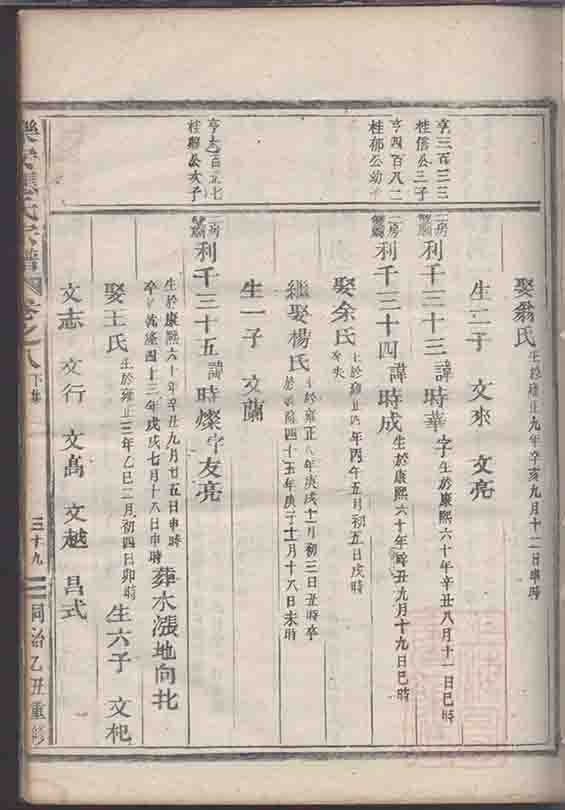 娶翁氏 生於雍正九年辛亥九月十二日申時
生二子 文來 文亮
亨三百三三
桂信公三子
二房
利千三十三 諱時華 字 生於康熙六十年辛丑八月十一日巳時
亨四百八二
桂郁公幼子
二房
利千三十四 諱時成 生於康熙六十年辛丑九月十九日巳時
娶余氏 生於雍正四年丙午五月初五日戌時
繼娶楊氏 生於雍正八年庚戌十一月初三日丑時卒
於乾隆四十五年庚子十一月十八日未時
生一子 文蘭
桂聯公次子
二房
利千三十五 諱時燦字友亮
生於康熙六十年辛丑九月廿五日申時
卒於乾隆四十三年戊戌七月十八日申時 葬水漲地向北
娶王氏 生於雍正三年乙巳二月初四日卯時 生六子 文杞
文志 文行 文高 文越 昌式
氏宗譜 卷之八 下集 三十九 同治乙丑重修